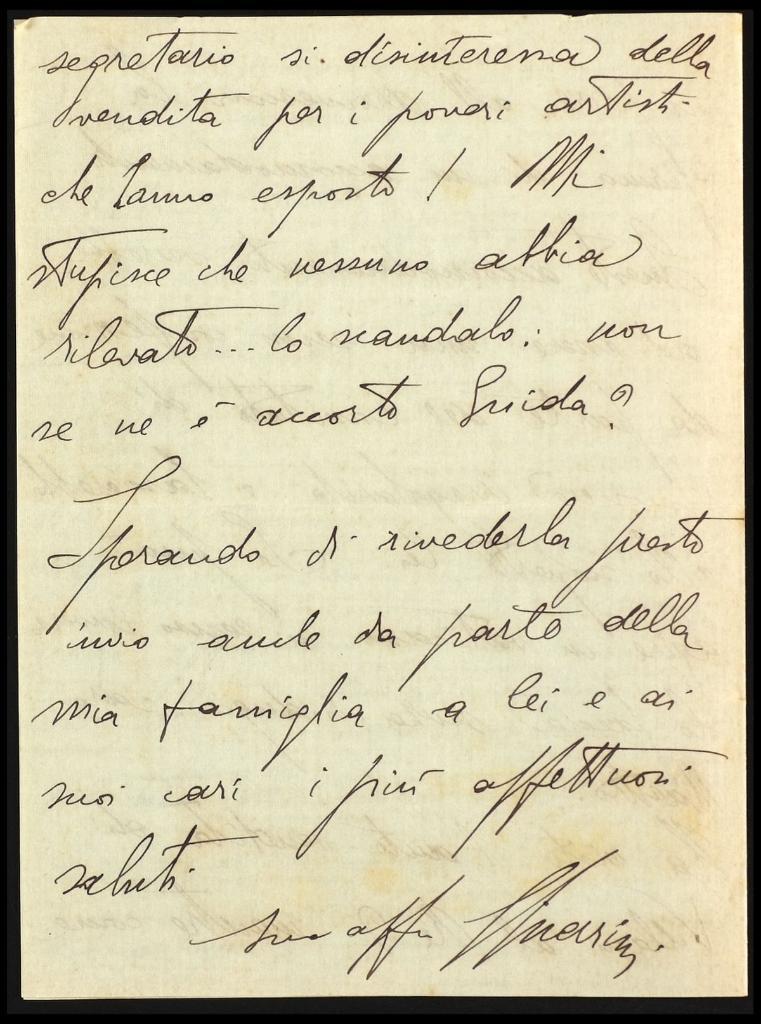 segretario si disinteressa della
vendita per i poveri artisti
che hanno esposto! Mi
stupisce che nessuno abbia
rilevato... lo scandalo: non
se ne è accorto Guida?
Sperando di rivederla presto
invio anche da parte della
mia famiglia a lei e ai
suoi cari i più affettuosi
saluti.
suo aff